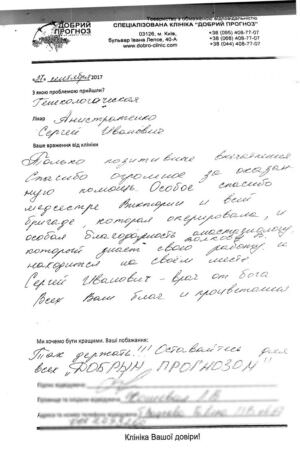 ДОБРИЙ
ПРОГНОЗ
Товариство з обмеженою відповідальністю
СПЕЦІАЛІЗОВАНА КЛІНІКА "ДОБРИЙ ПРОГНОЗ"
03126, м. Київ,
бульвар Івана Лепсе, 40-А
www.dobro-clinic.com
+38 (095) 408-77-07
+38 (067) 408-77-07
+38 (044) 408-77-07
2017
З якою проблемою прийшли?
Гинекологическая
Лікар Анистратенко
Сергей Иванович
Ваше враження від клініки
Только позитивные впечатления
Спасибо огромное за оказан
ную помощь. Особое спасибо
медсестре Виктории и всей
бригаде, которая оперировала, и
особая благодарность анастазиологу
который знает свою работу и
находится на своём месте
Сергей Иванович - врач от бога
Всех Вам благ и процветания
Ми хочемо бути кращими. Ваші побажання:
Так держать!!! Оставайтесь для
всех "ДОБРЫМ ПРОГНОЗОМ"
Підпис відвідувача
Прізвище та ініціали відвідувача
Адреса та номер телефону відвідувача
Клініка Вашої довіри!